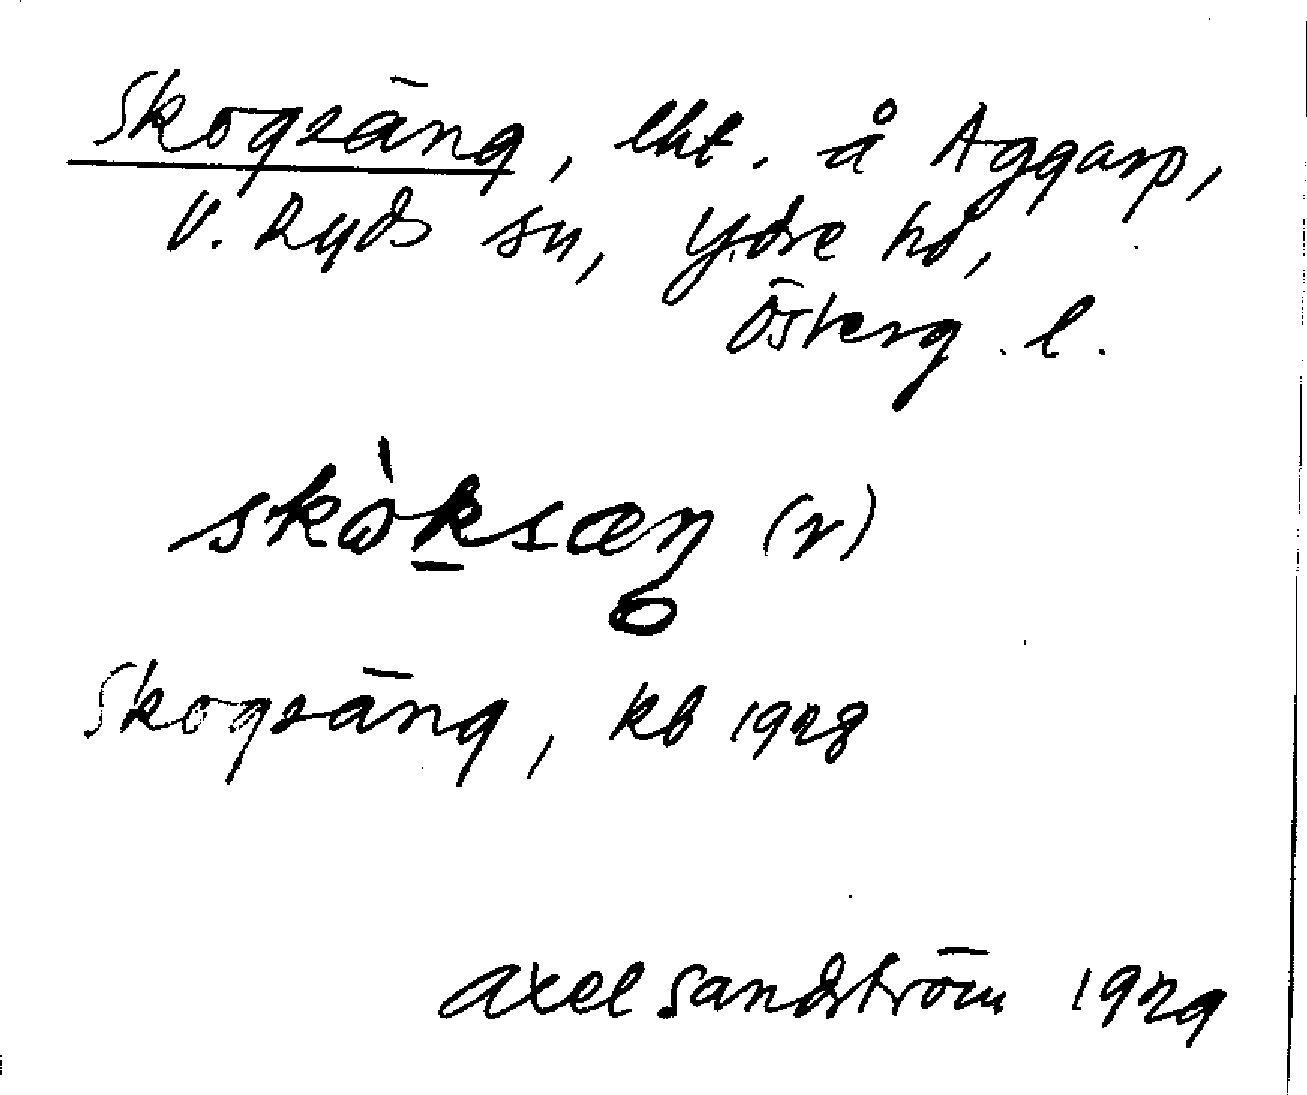 Skogsäng, lht. å Aggarp,
V. Ryds sn, Ydre hd,
Österg. l.
skò̱ksæŋ (r)
Skogsäng, kb 1928
Axel Sandström 1929